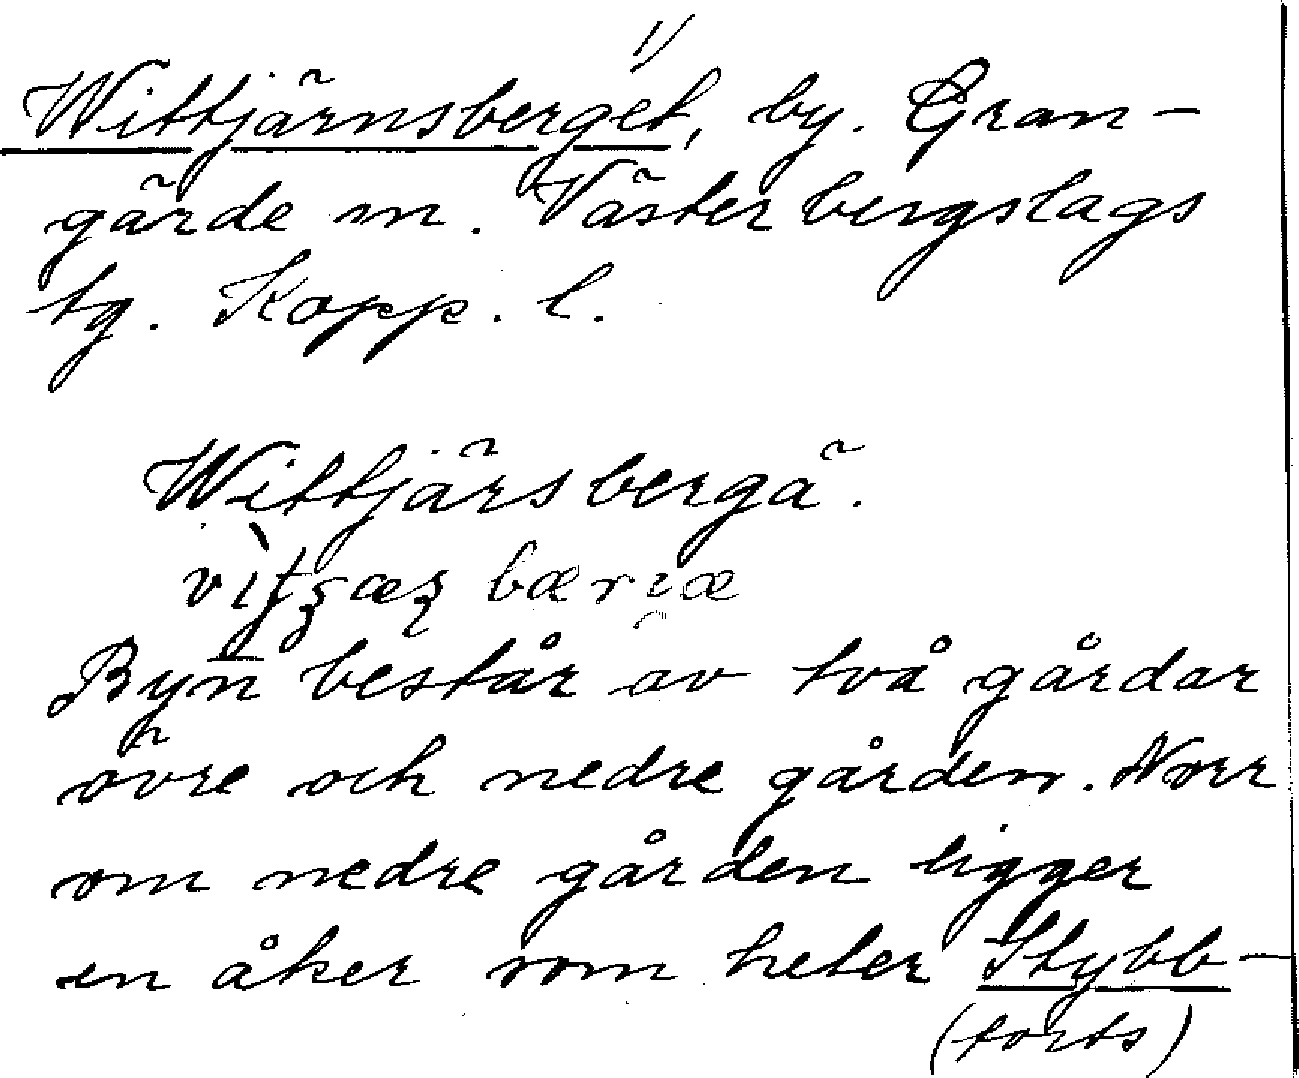 1/
Wittjärnsberget, by. Gran-
gärde sn. Västerbergslags
tg. Kopp. l.
Wittjärsbergä.
Byn består av två gårdar
övre och nedre gården. Norr
om nedre gården ligger
en åker som heter Stybb-
(forts)